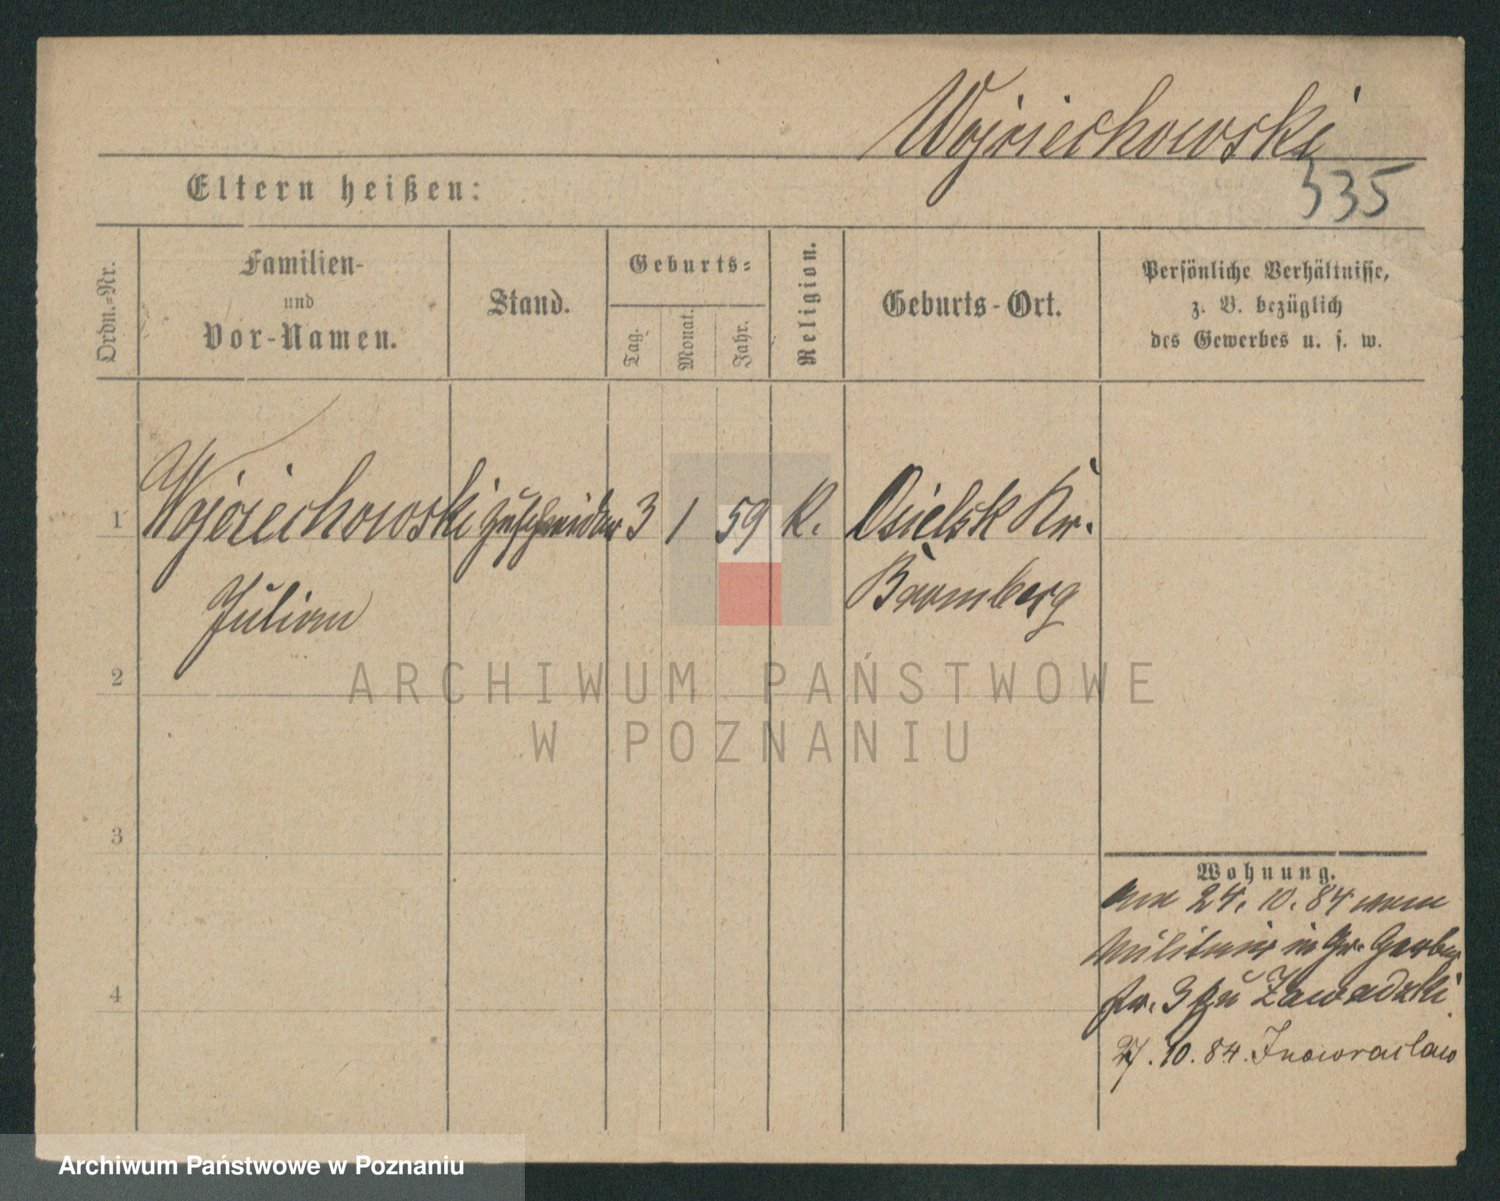 Wojciechowski
335
Eltern heißen:
Ordn.-Nr.
Familien-
und
Vor-Namen.
Stand.
Geburts-
Tag.
Monat.
Jahr.
Religion.
Geburts-Ort.
Persönliche Verhältnisse,
z. B. bezüglich
des Gewerbes u. s. w.
1 Wojciechowski Zuschneider 3 1 59 K. Osielsk Kr.
Julian Bromberg
2
ARCHIWUM PAŃSTWOWE
W POZNANIU
3
Wohnung.
24. 10. 84 vom
Militair in Gr. Gerber
str. 3 zu Zawadzki
4
27. 10. 84. Inowraclaw
Archiwum Państwowe w Poznaniu